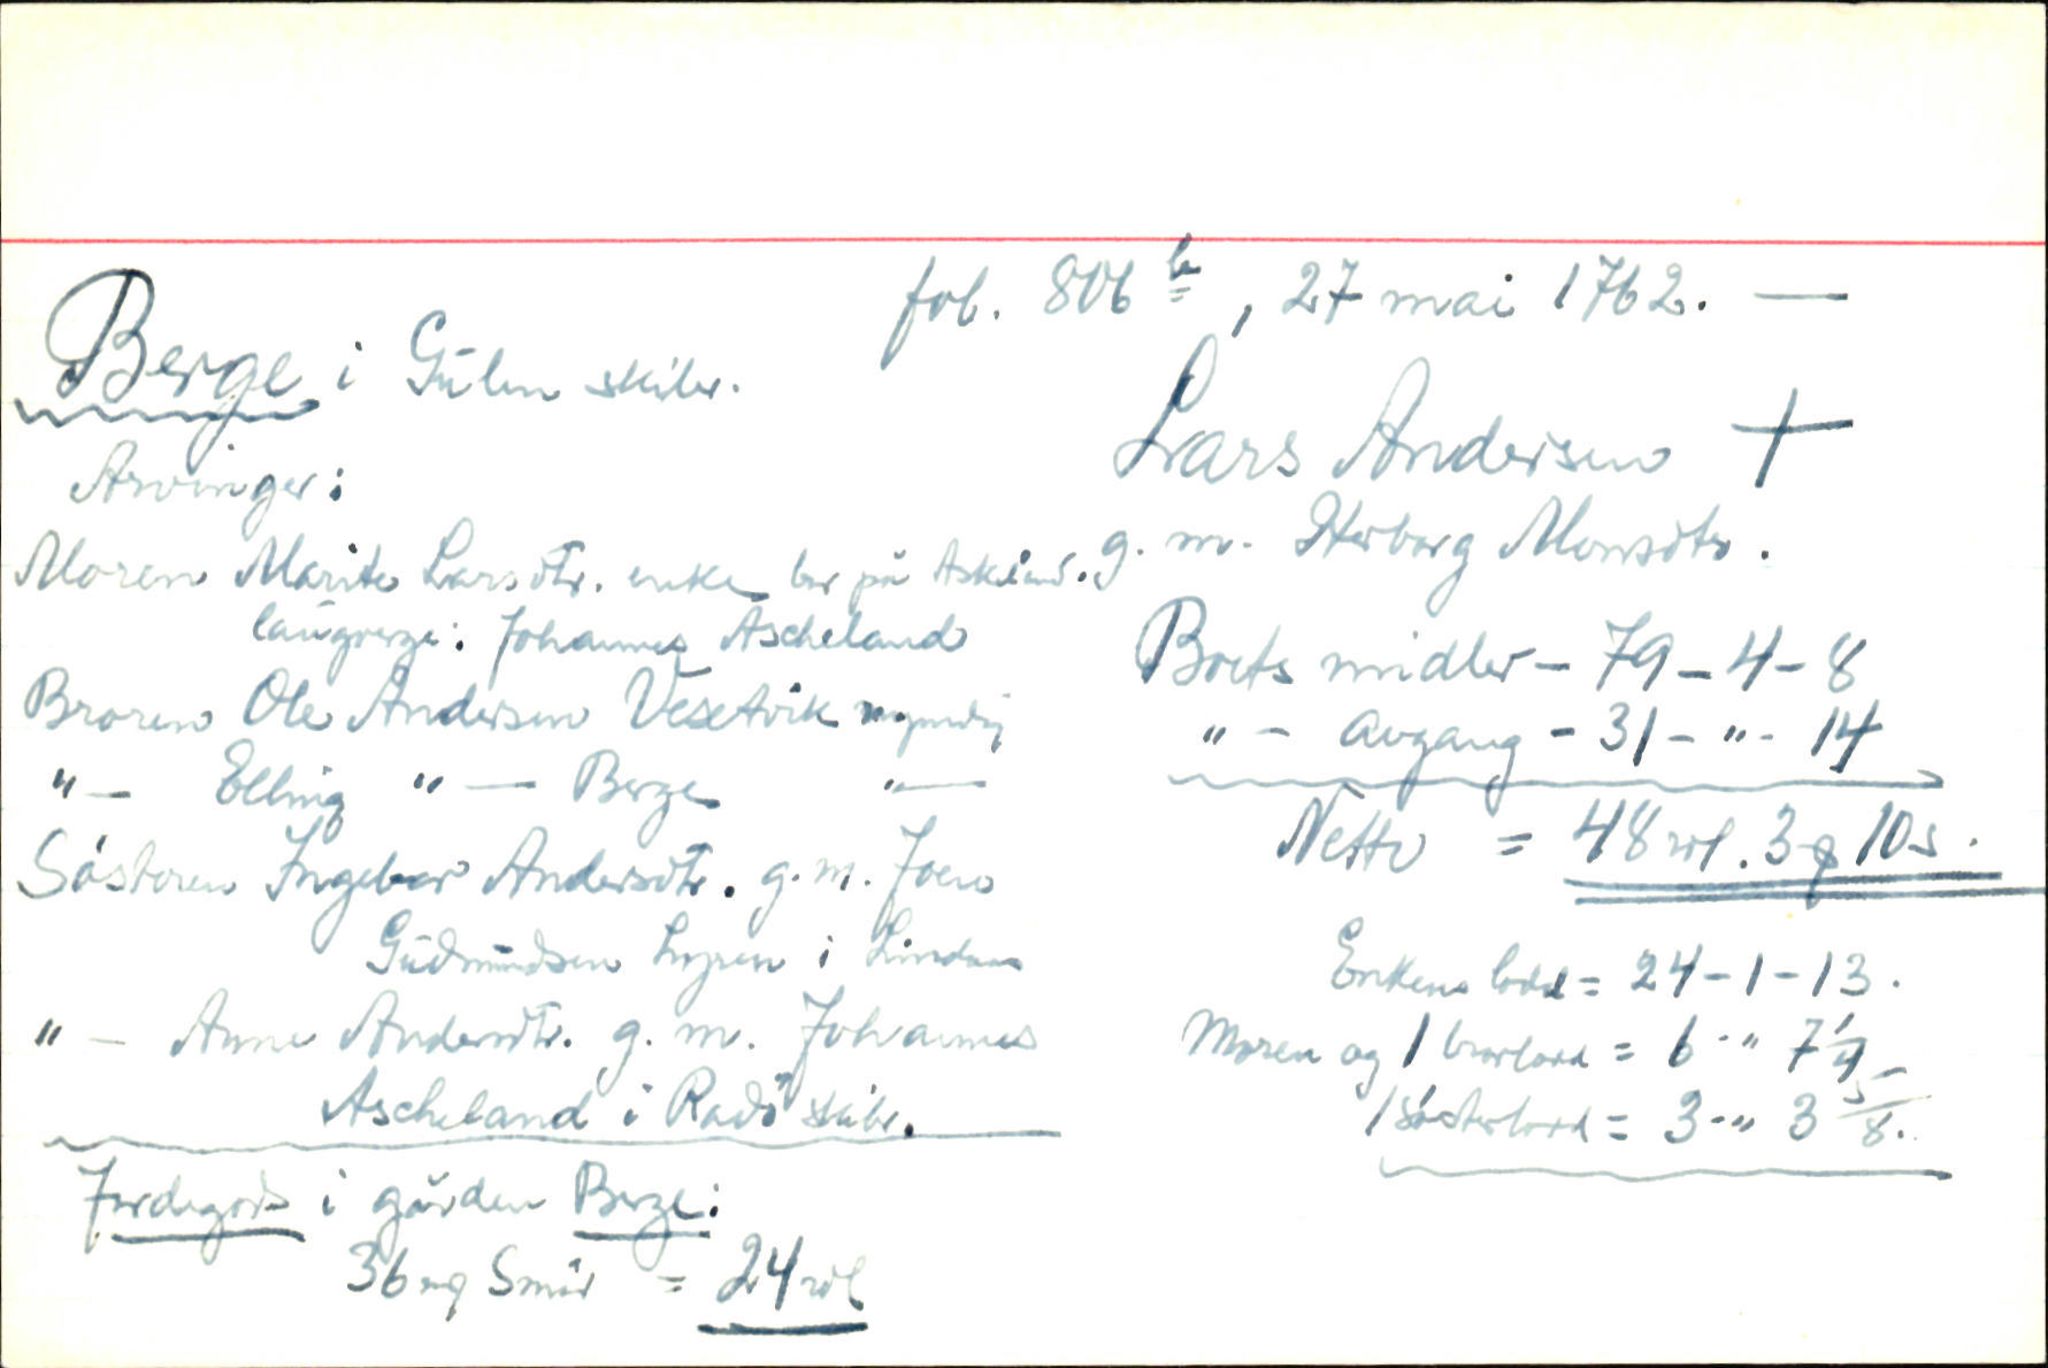 fol. 806 b, 27 mai 1762. —
Berge i Gülen skibr.
Lars Andersen +
g. m. Herborg Monsdtr.
Arvinger:
Moren Marite Larsdtr. enke bor på Askeland.
laugverge: Johannes Ascheland
Broren Ole Andersen Vesetvik myndig
"— Elling "— Berge "—
Søsteren Ingebor Andersdtr. g. m. Joen
Gudmundsen Lygren i Lindaas
"— Anne Andersdtr. g. m. Johannes
Ascheland i Radö skibr.
Jordegods i gården Berge:
36 mg Smör = 24 rdl
Boets midler - 79 - 4 - 8
" - avgang - 31 - " - 14
Netto = 48 rdl. 3 ƒ 10 s.
Enkens lodd = 24 - 1 - 13.
Moren og 1 brorlodd = 6 - " 7 1/4
1 søsterlodd = 3 - " 3 5/8.